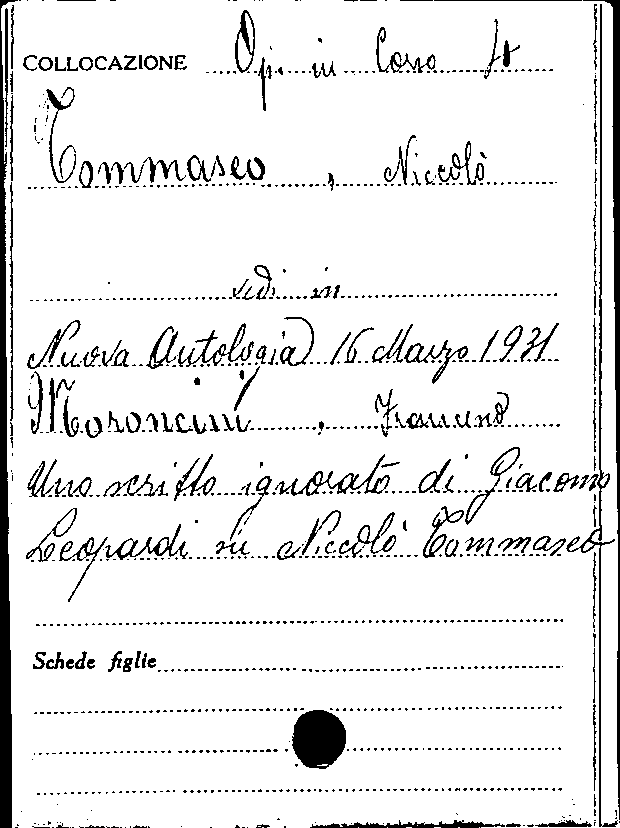 COLLOCAZIONE Op. in Corso
Tommaseo, Niccolò
vedi in
Nuova Antologia 16 Marzo 1931
Moroncini, Francesco
Uno scritto ignorato di Giacomo
Leopardi su Niccolò Tommaseo
Schede figlie